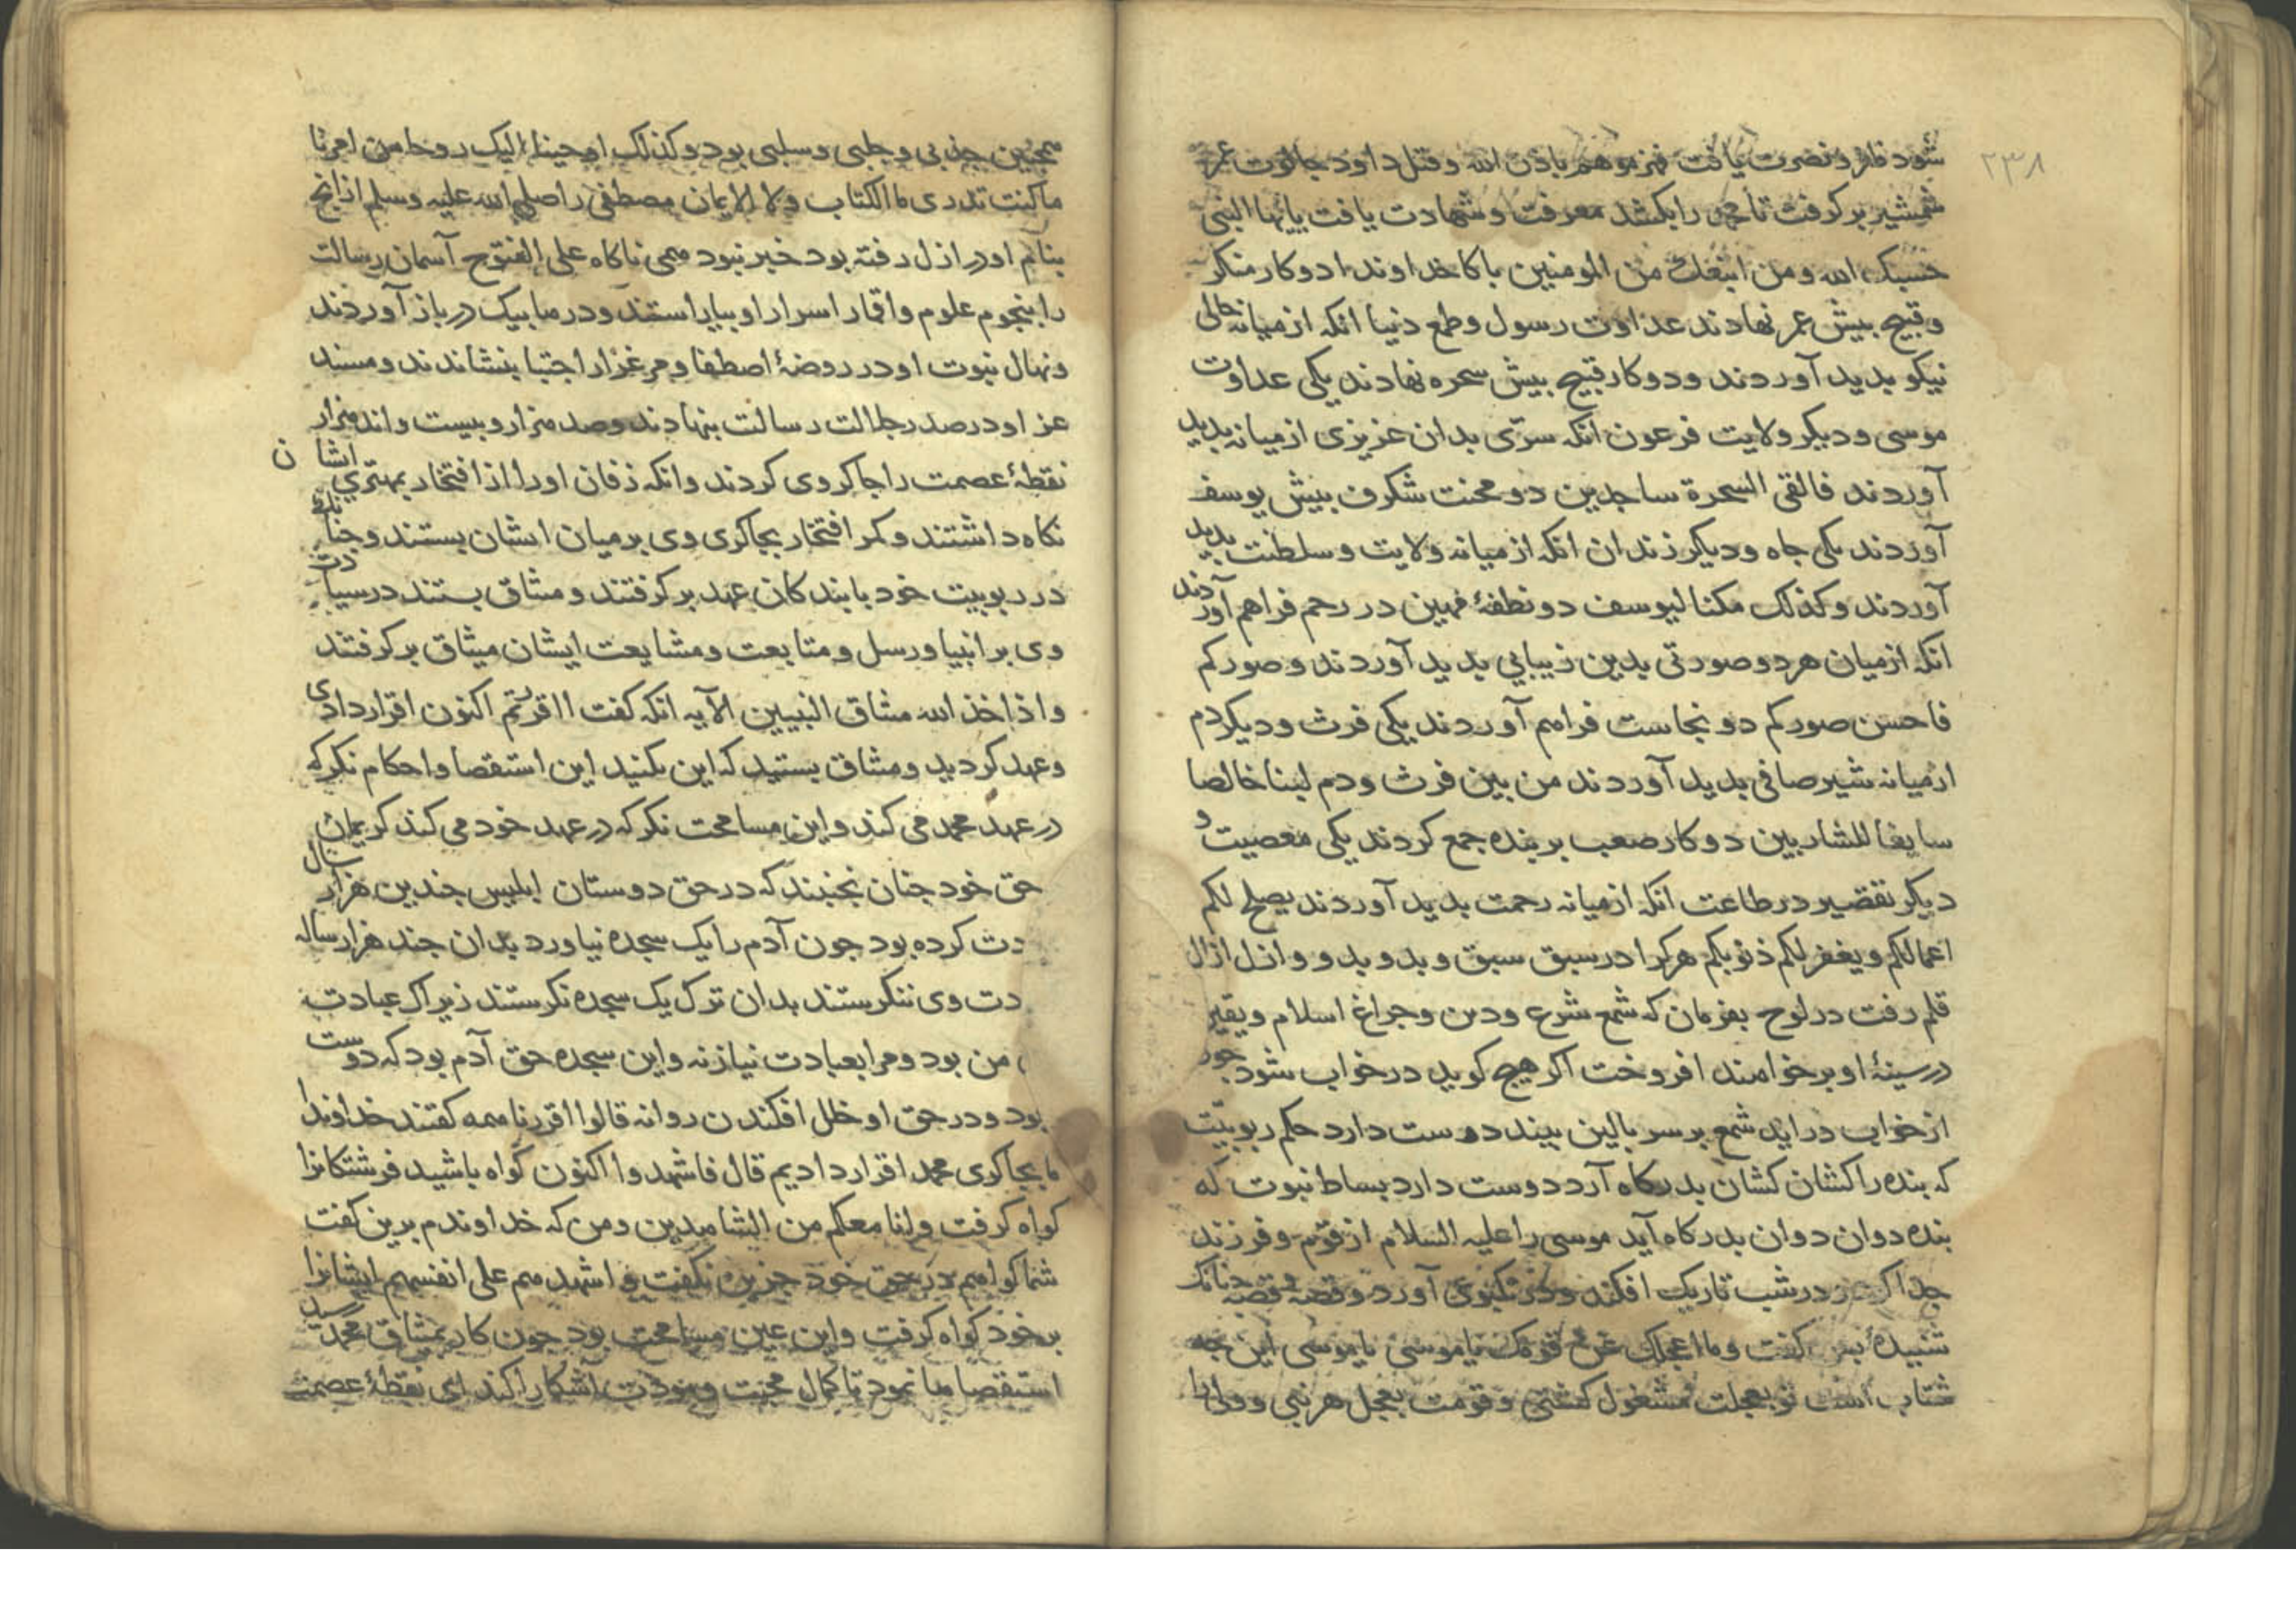 ۲۳۸
شود ظفر و نصرت یافت فهزموهم باذن الله وقتل داود جالوت عمر
شمشیر برکرفت تا محمد را بکشد معرفت و شهادت یافت یایها النبی
حسبک الله ومن اتبعک من المومنین پاکا خداوندا دو کار منکر
و قبیح بیش عمر نهادند عداوت رسول و طمع دنیا انکه ازمیانه حالی
نیکو بدید آوردند ودو کار قبیح بیش سحره نهادند یکی عداوت
موسی و دیکر ولایت فرعون انکه سرّی بدان عزیزی ازمیانه بدید
آوردند فالقی السحرة ساجدین دو محنت شکرف بیش یوسف
آوردند یکی جاه ودیکر زندان انکه ازمیانه ولایت و سلطنت بدید
آوردند وکذلک مکنا لیوسف دو نطفهٔ مهین در رحم فراهم آوردند
انکه ازمیان هر دو صورتی بدین زیبایی بدید آوردند و صورکم
فاحسن صورکم دو نجاست فراهم آوردند یکی فرث و دیکر دم
ازمیانه شیر صافی بدید آوردند من بین فرث ودم لبنا خالصا
سایغا للشاربین دو کار صعب بر بنده جمع کردند یکی معصیت و
دیکر تقصیر در طاعت انکه ازمیانه رحمت بدید آوردند یصلح لکم
اعمالکم ویغفر لکم ذنوبکم هرکرا در سبق سبق و بدو بدو و ازل ازال
قلم رفت در لوح بفرمان که شمع شرع ودین وجراغ اسلام و یقین
در سینهٔ او برخواهند افروخت اکر هیچ کوید درخواب شود جون
ازخواب در اید شمع بر سر بالین بیند دوست دارد حکم ربوبیّت
که بنده را کشان کشان بدرکاه آرد دوست دارد بساط نبوت که
بنده دوان دوان بدرکاه آید موسی را علیه السلام از قوم و فرزند
جدا کرد ودر شب تاریک افکند و در تکبوی آورد وقصهٔ قصه جنانک
شنیدهٔ بس کفت وما اعجلک عن قومک یاموسی یاموسی این جه
شتاب است تو بعجلت مشغول کشتی و قومت بعجل هر نبی و
همجنین جذبی و جلبی و سلبی بود وکذلک اوحینا الیک روحا من امرنا
ماکنت تدری ما الکتاب ولا الایمان مصطفی را صلی الله علیه وسلم ازانج
بنام او در ازل رفته بود خبر نبود همی ناکاه علی الفتوح آسمان رسالت
را بنجوم علوم و اقمار اسرار او بیاراستند و در مابیک در باز آوردند
ونهال نبوت او در روضهٔ اصطفا و مرغزار اجتبا بنشاندند ومسند
عز او در صدر جلالت رسالت بنهادند وصد هزار وبیست واند هزار
نقطهٔ عصمت را جاکر وی کردند وانکه ذقان او را از افتخار بمهتری ایشان
نکاه داشتند وکمر افتخار بجاکری وی بر میان ایشان بستند و جنانک
در ربوبیت خود با بندکان عهد برکرفتند و مثاق بستند در سیادت
وی بر انبیا ورسل و متابعت ومشایعت ایشان میثاق برکرفتند
واذ اخذ الله مثاق النبیین الآیه انکه کفت ااقررتم اکنون اقرار دادی
وعهد کردید ومثاق بستید که این نکنید این استقصا و احکام نکر که
در عهد محمد می کند واین مسامحت نکر که در عهد خود می کند کریمان
حق خود جنان نجنبند که در حق دوستان ابلیس جندین هزار سال
دت کرده بود جون آدم را یک سجده نیاورد بدان جند هزار ساله
دت وی ننکرستند بدان ترک یک سجده نکرستند زیراک عبادت
من بود ومرا بعبادت نیاز نه واین سجده حق آدم بود که دوست
بود ودر حق او خلل افکندن روا نه قالوا اقررنا همه کفتند خداوندا
ما بجاکری محمد اقرار دادیم قال فاشهدوا اکنون کواه باشید فرشتکانرا
کواه کرفت وانا معکم من الشاهدین ومن که خداوندم برین کفت
شما کواهم در حق خود جزین نکفت و اشهدهم علی انفسهم ایشانرا
برخود کواه کرفت واین عین مسامحت بود جون کار بمثاق محمد رسید
استقصاها نمود تا کمال محبت و مودت آشکارا کند ای نقطهٔ عصمت